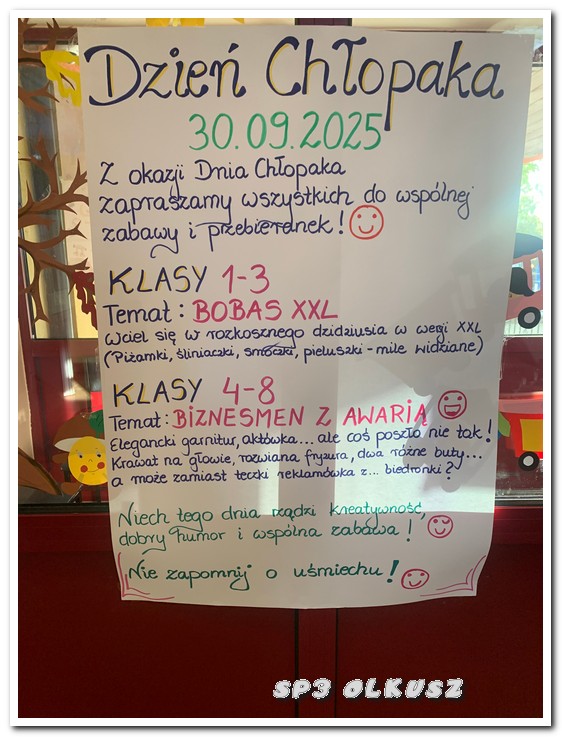 Dzień Chłopaka
30.09.2025
Z okazji Dnia Chłopaka
zapraszamy wszystkich do wspólnej
zabawy i przebieranek!
KLASY 1-3
Temat: BOBAS XXL
Wciel się w rozkosznego dzidziusia w wersji XXL
(Piżamki, śliniaczki, smoczki, pieluszki - mile widziane)
KLASY 4-8
Temat: BIZNESMEN Z AWARIĄ
Elegancki garnitur, aktówka... ale coś poszło nie tak!
Krawat na głowie, rozwiana fryzura, dwa różne buty...
a może zamiast teczki reklamówka z... biedronki?
Niech tego dnia rządzi kreatywność,
dobry humor i wspólna zabawa!
Nie zapomnij o uśmiechu!
SP3 OLKUSZ